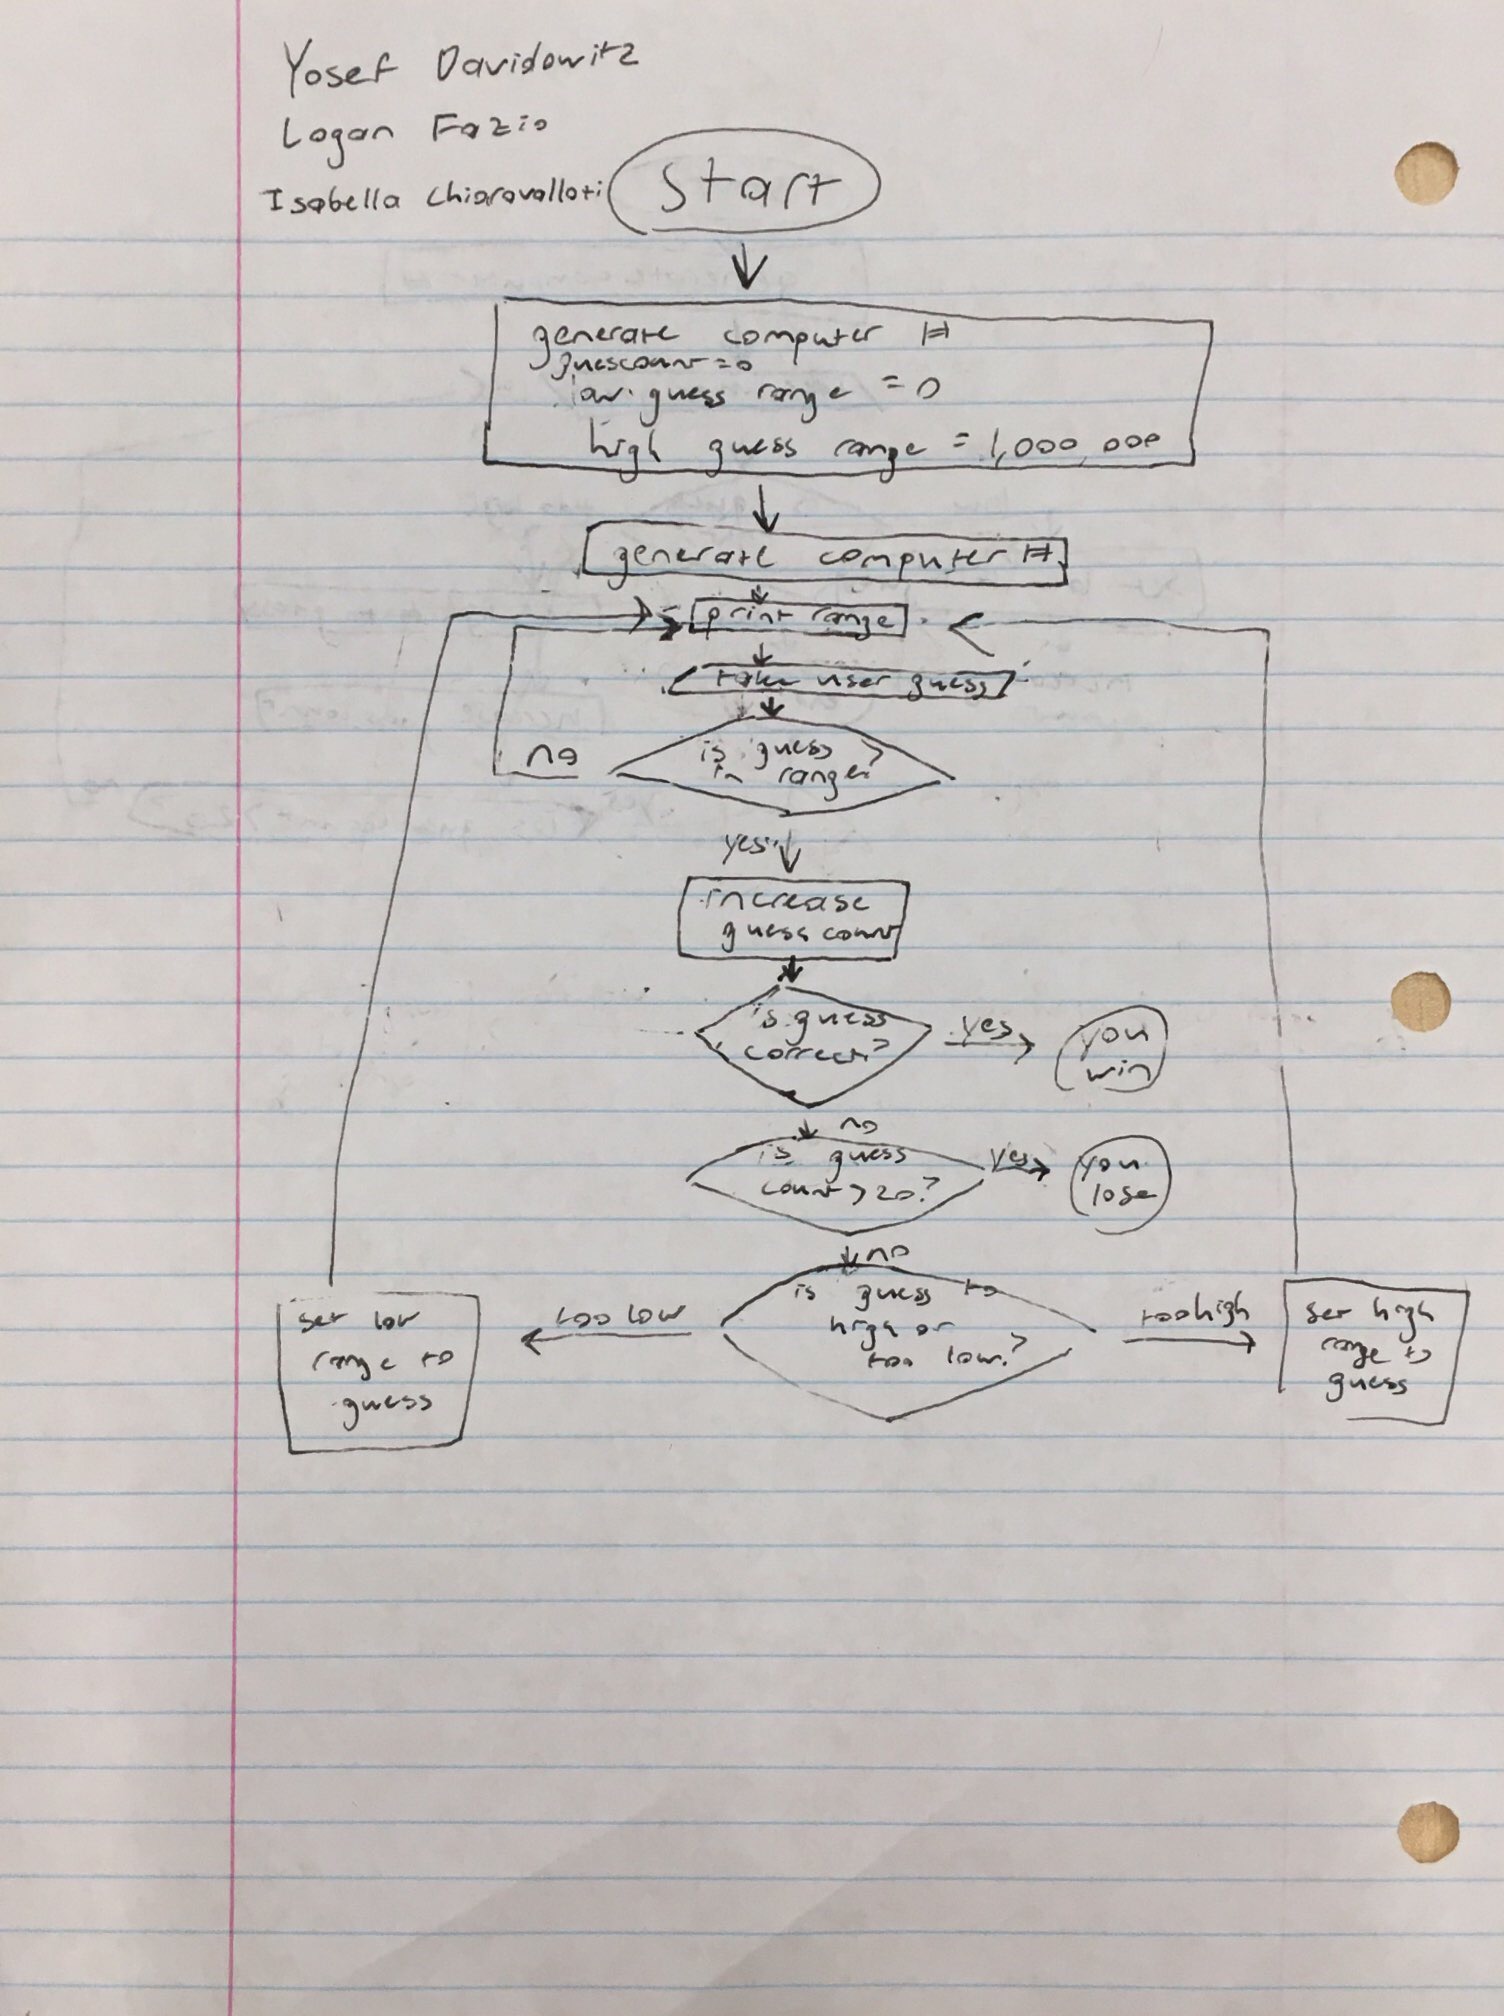 Yosef Davidowitz
Logan Fazio
Isabella Chiaravalloti
Start
generate computer #
guescount = 0
low guess range = 0
high guess range = 1,000,000
generate computer #
print range
take user guess
is guess
in range?
no
yes
increase
guess count
is guess
correct?
yes
you
win
no
is guess
count > 20?
yes
you
lose
no
is guess to
high or
too low?
too low
too high
set low
range to
guess
set high
range to
guess